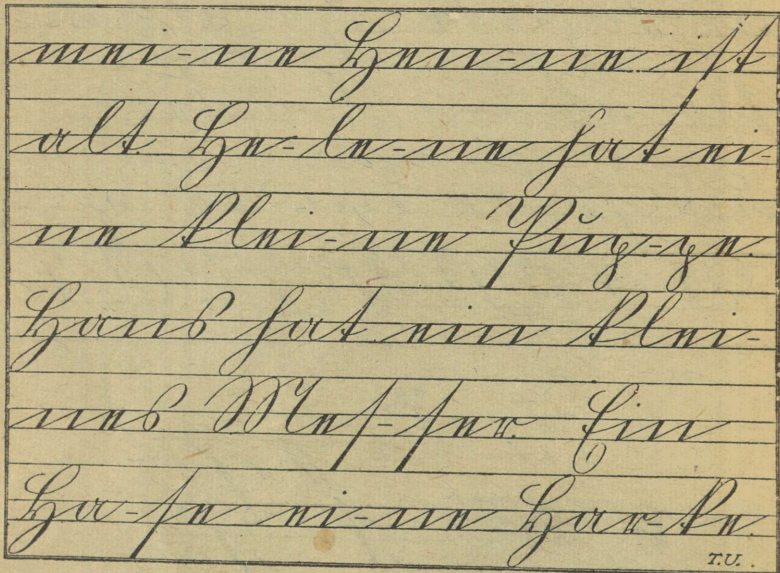 mei-ne Hen-ne ist
alt. He-le-ne hat ei-
ne klei-ne Pup-pe.
Hans hat ein klei-
nes Mes-ser. Ein
Ha-se ei-ne Har-ke.
T.U.